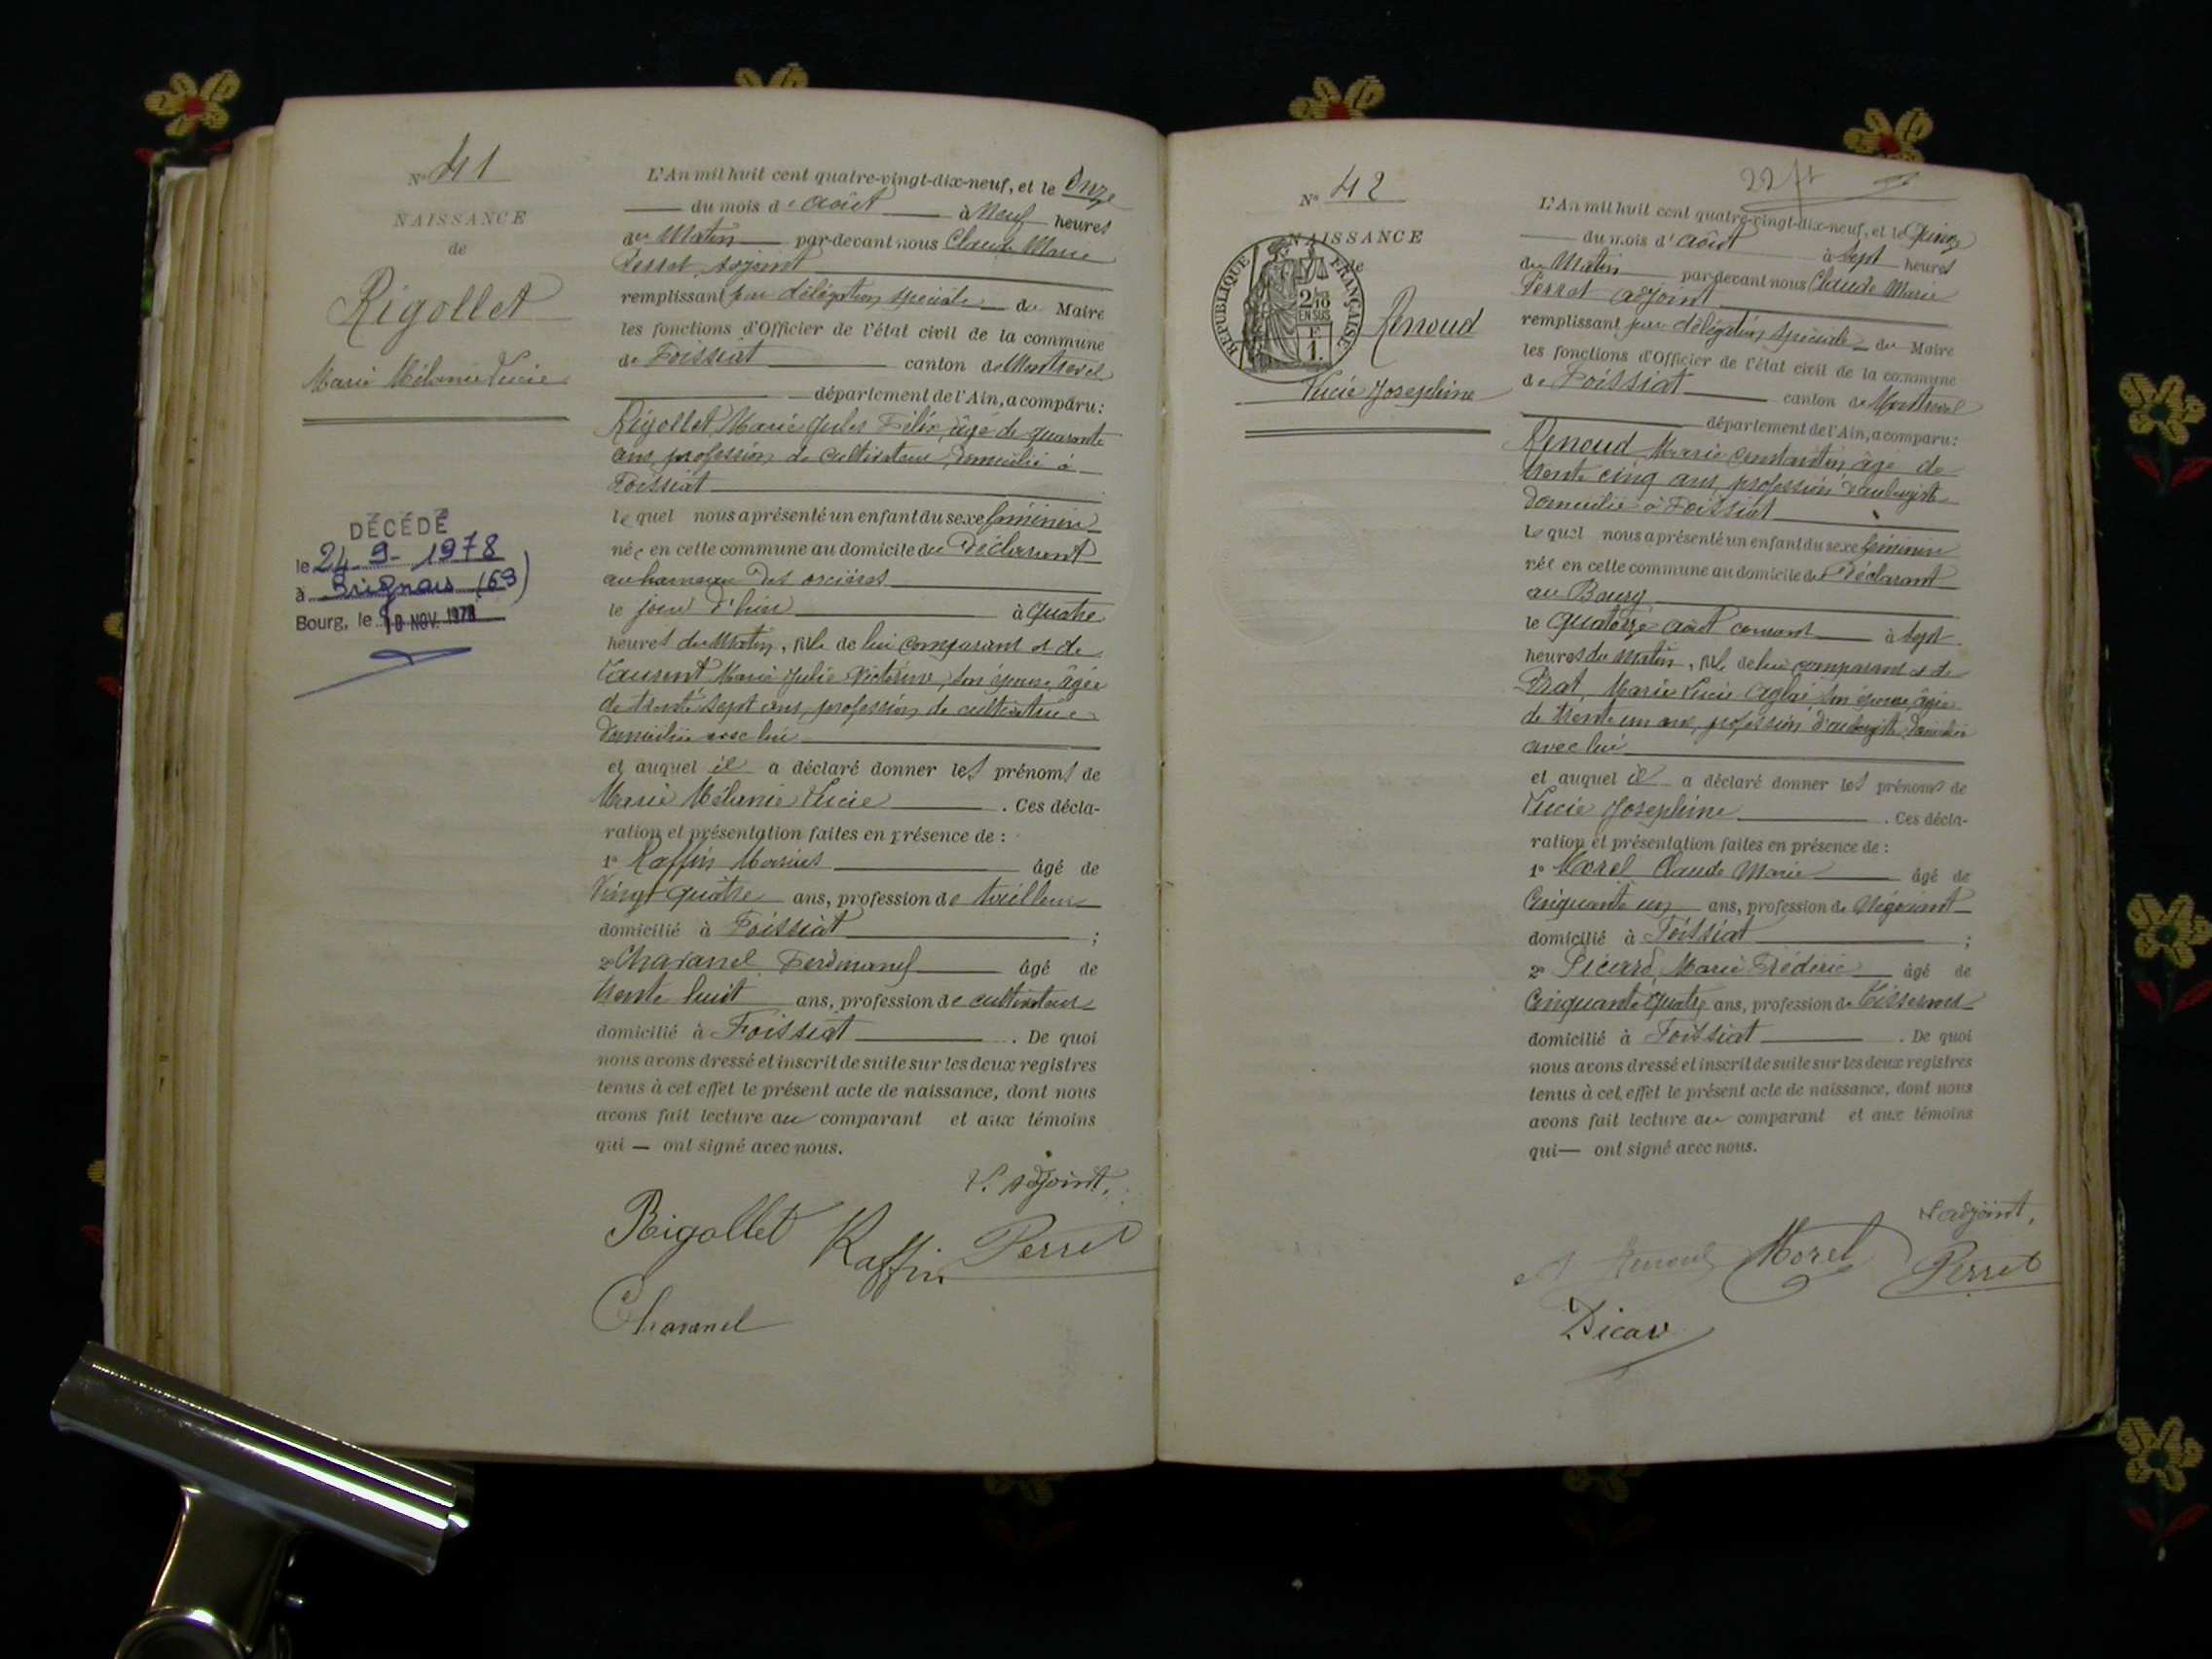 N° 41
NAISSANCE
de
Rigollet
Marie Mélanie Lucie
DÉCÉDÉ
le 24-9-1978
à Brignais (69)
Bourg, le 10 NOV. 1978
L'An mil huit cent quatre-vingt-dix-neuf, et le Onze
du mois d'Août à Neuf heures
du Matin par-devant nous Claude Marie
Perret adjoint
remplissant par délégation spéciale du Maire
les fonctions d'Officier de l'état civil de la commune
de Foissiat canton de Montrevel
département de l'Ain, a comparu:
Rigollet Marie Jules Félix, âgé de quarante
ans profession de cultivateur domicilié à
Foissiat
lequel nous a présenté un enfant du sexe féminin
née en cette commune au domicile du Déclarant
au hameau des
le jour d'hier à quatre
heures du Matin, fille de lui comparant et de
Laurent Marie Julie Victorine, son épouse, âgée
de trente sept ans, profession de cultivatrice
domiciliée avec lui
et auquel il a déclaré donner les prénoms de
Marie Mélanie Lucie. Ces décla-
ration et présentation faites en présence de :
1° Raffin Marius âgé de
Vingt quatre ans, profession de tailleur
domicilié à Foissiat ;
2° Charanel Ferdinand âgé de
trente huit ans, profession de cultivateur
domicilié à Foissiat. De quoi
nous avons dressé et inscrit de suite sur les deux registres
tenus à cet effet le présent acte de naissance, dont nous
avons fait lecture au comparant et aux témoins
qui — ont signé avec nous.
L'adjoint,
Rigollet Raffin Perret
Charanel
22
N° 42
NAISSANCE
de
RÉPUBLIQUE FRANÇAISE
2/10
EN SUS
F.
1.
Renoud
Lucie Josephine
L'An mil huit cent quatre-vingt-dix-neuf, et le Quinze
du mois d'Août à Sept heures
du Matin par-devant nous Claude Marie
Perret adjoint
remplissant par délégation spéciale du Maire
les fonctions d'Officier de l'état civil de la commune
de Foissiat canton de Montrevel
département de l'Ain, a comparu:
Renoud Marie Constantin âgé de
trente cinq ans profession d'aubergiste
domicilié à Foissiat
lequel nous a présenté un enfant du sexe féminin
née en cette commune au domicile du Déclarant
au Bourg
le quatorze août courant à sept
heures du matin, fille de lui comparant et de
Prat, Marie Lucie Aglaé son épouse, âgée
de trente un ans, profession d'aubergiste, domiciliée
avec lui
et auquel il a déclaré donner les prénoms de
Lucie Josephine. Ces décla-
ration et présentation faites en présence de :
1° Morel Claude Marie âgé de
Cinquante un ans, profession de Négociant
domicilié à Foissiat ;
2° Picard, Marie Frédéric âgé de
Cinquante quatre ans, profession de Tisserand
domicilié à Foissiat. De quoi
nous avons dressé et inscrit de suite sur les deux registres
tenus à cet effet le présent acte de naissance, dont nous
avons fait lecture au comparant et aux témoins
qui — ont signé avec nous.
L'adjoint,
Renoud Morel Perret
Picar